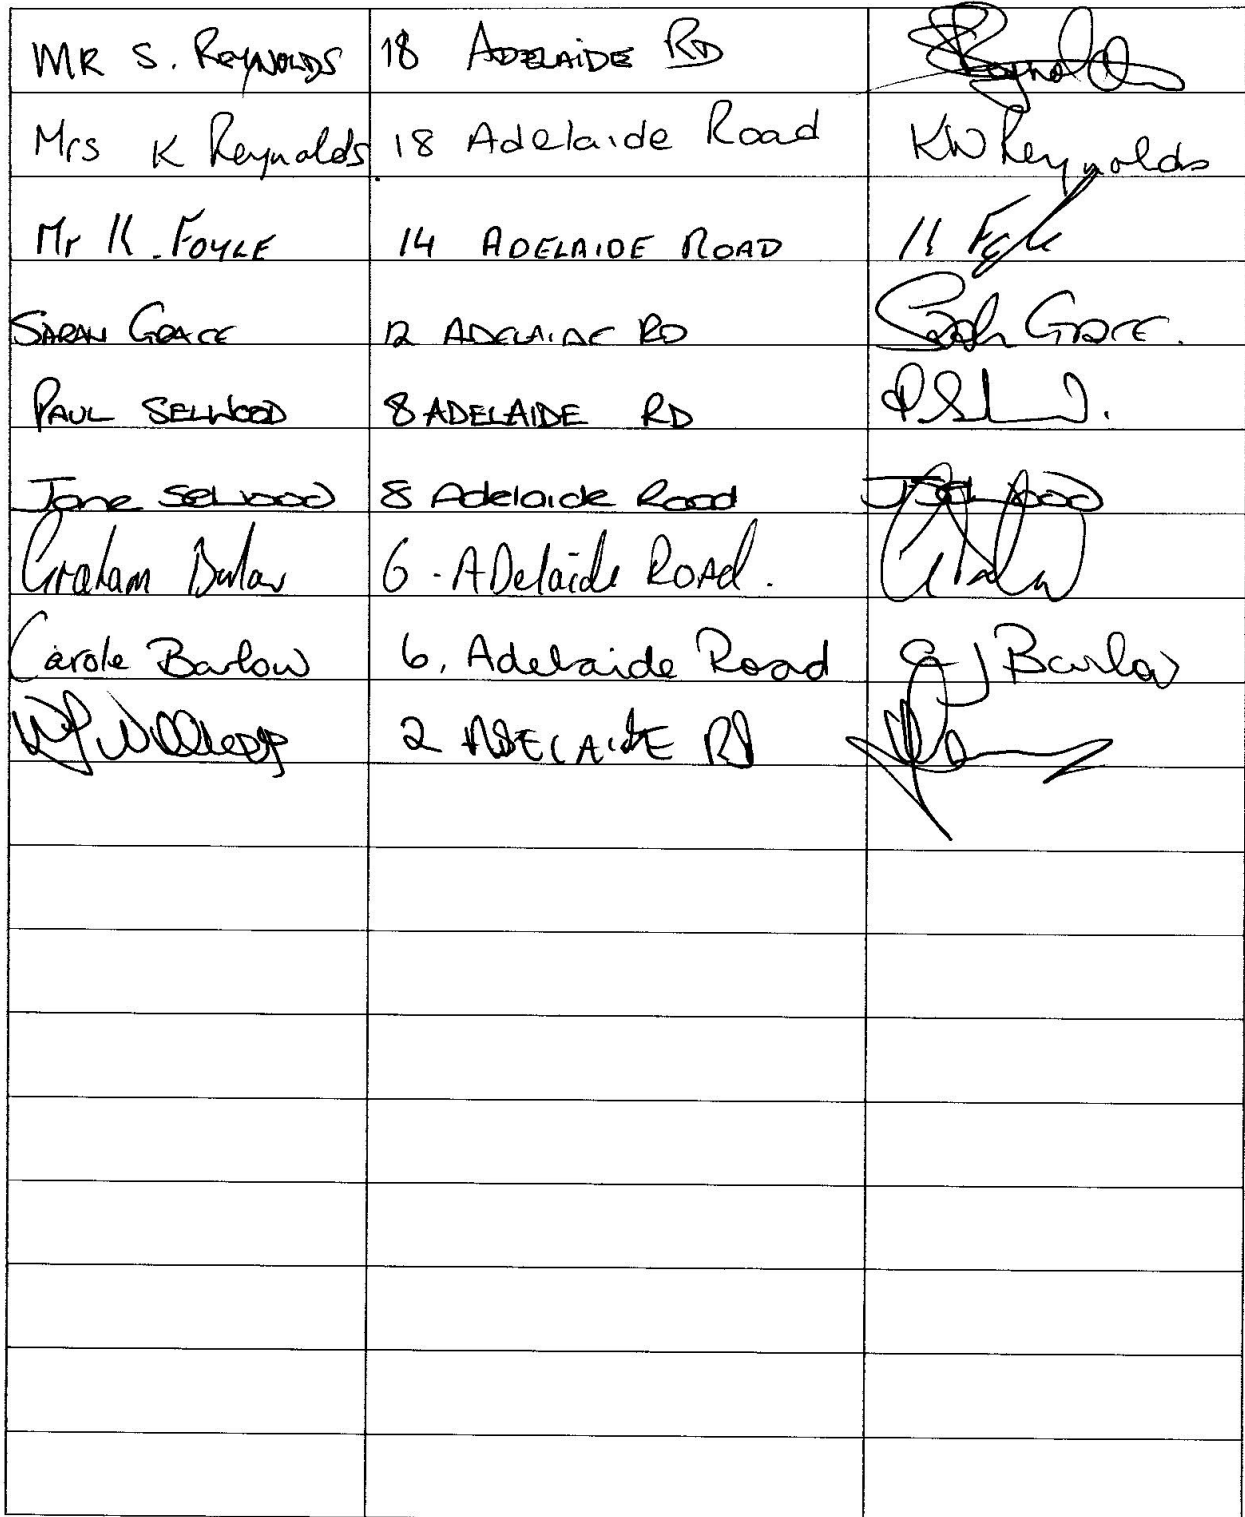 MR S. REYNOLDS 18 ADELAIDE RD Reynolds
Mrs K Reynolds 18 Adelaide Road KW Reynolds
Mr K. FOYLE 14 ADELAIDE ROAD K Foyle
SARAH GRACE 12 ADELAIDE RD Sarah Grace.
PAUL SELWOOD 8 ADELAIDE RD
Jane Selwood 8 Adelaide Road J Selwood
Graham Barlow 6 - ADelaide ROAd.
Carole Barlow 6, Adelaide Road C J Barlow
2 ADELAIDE RD